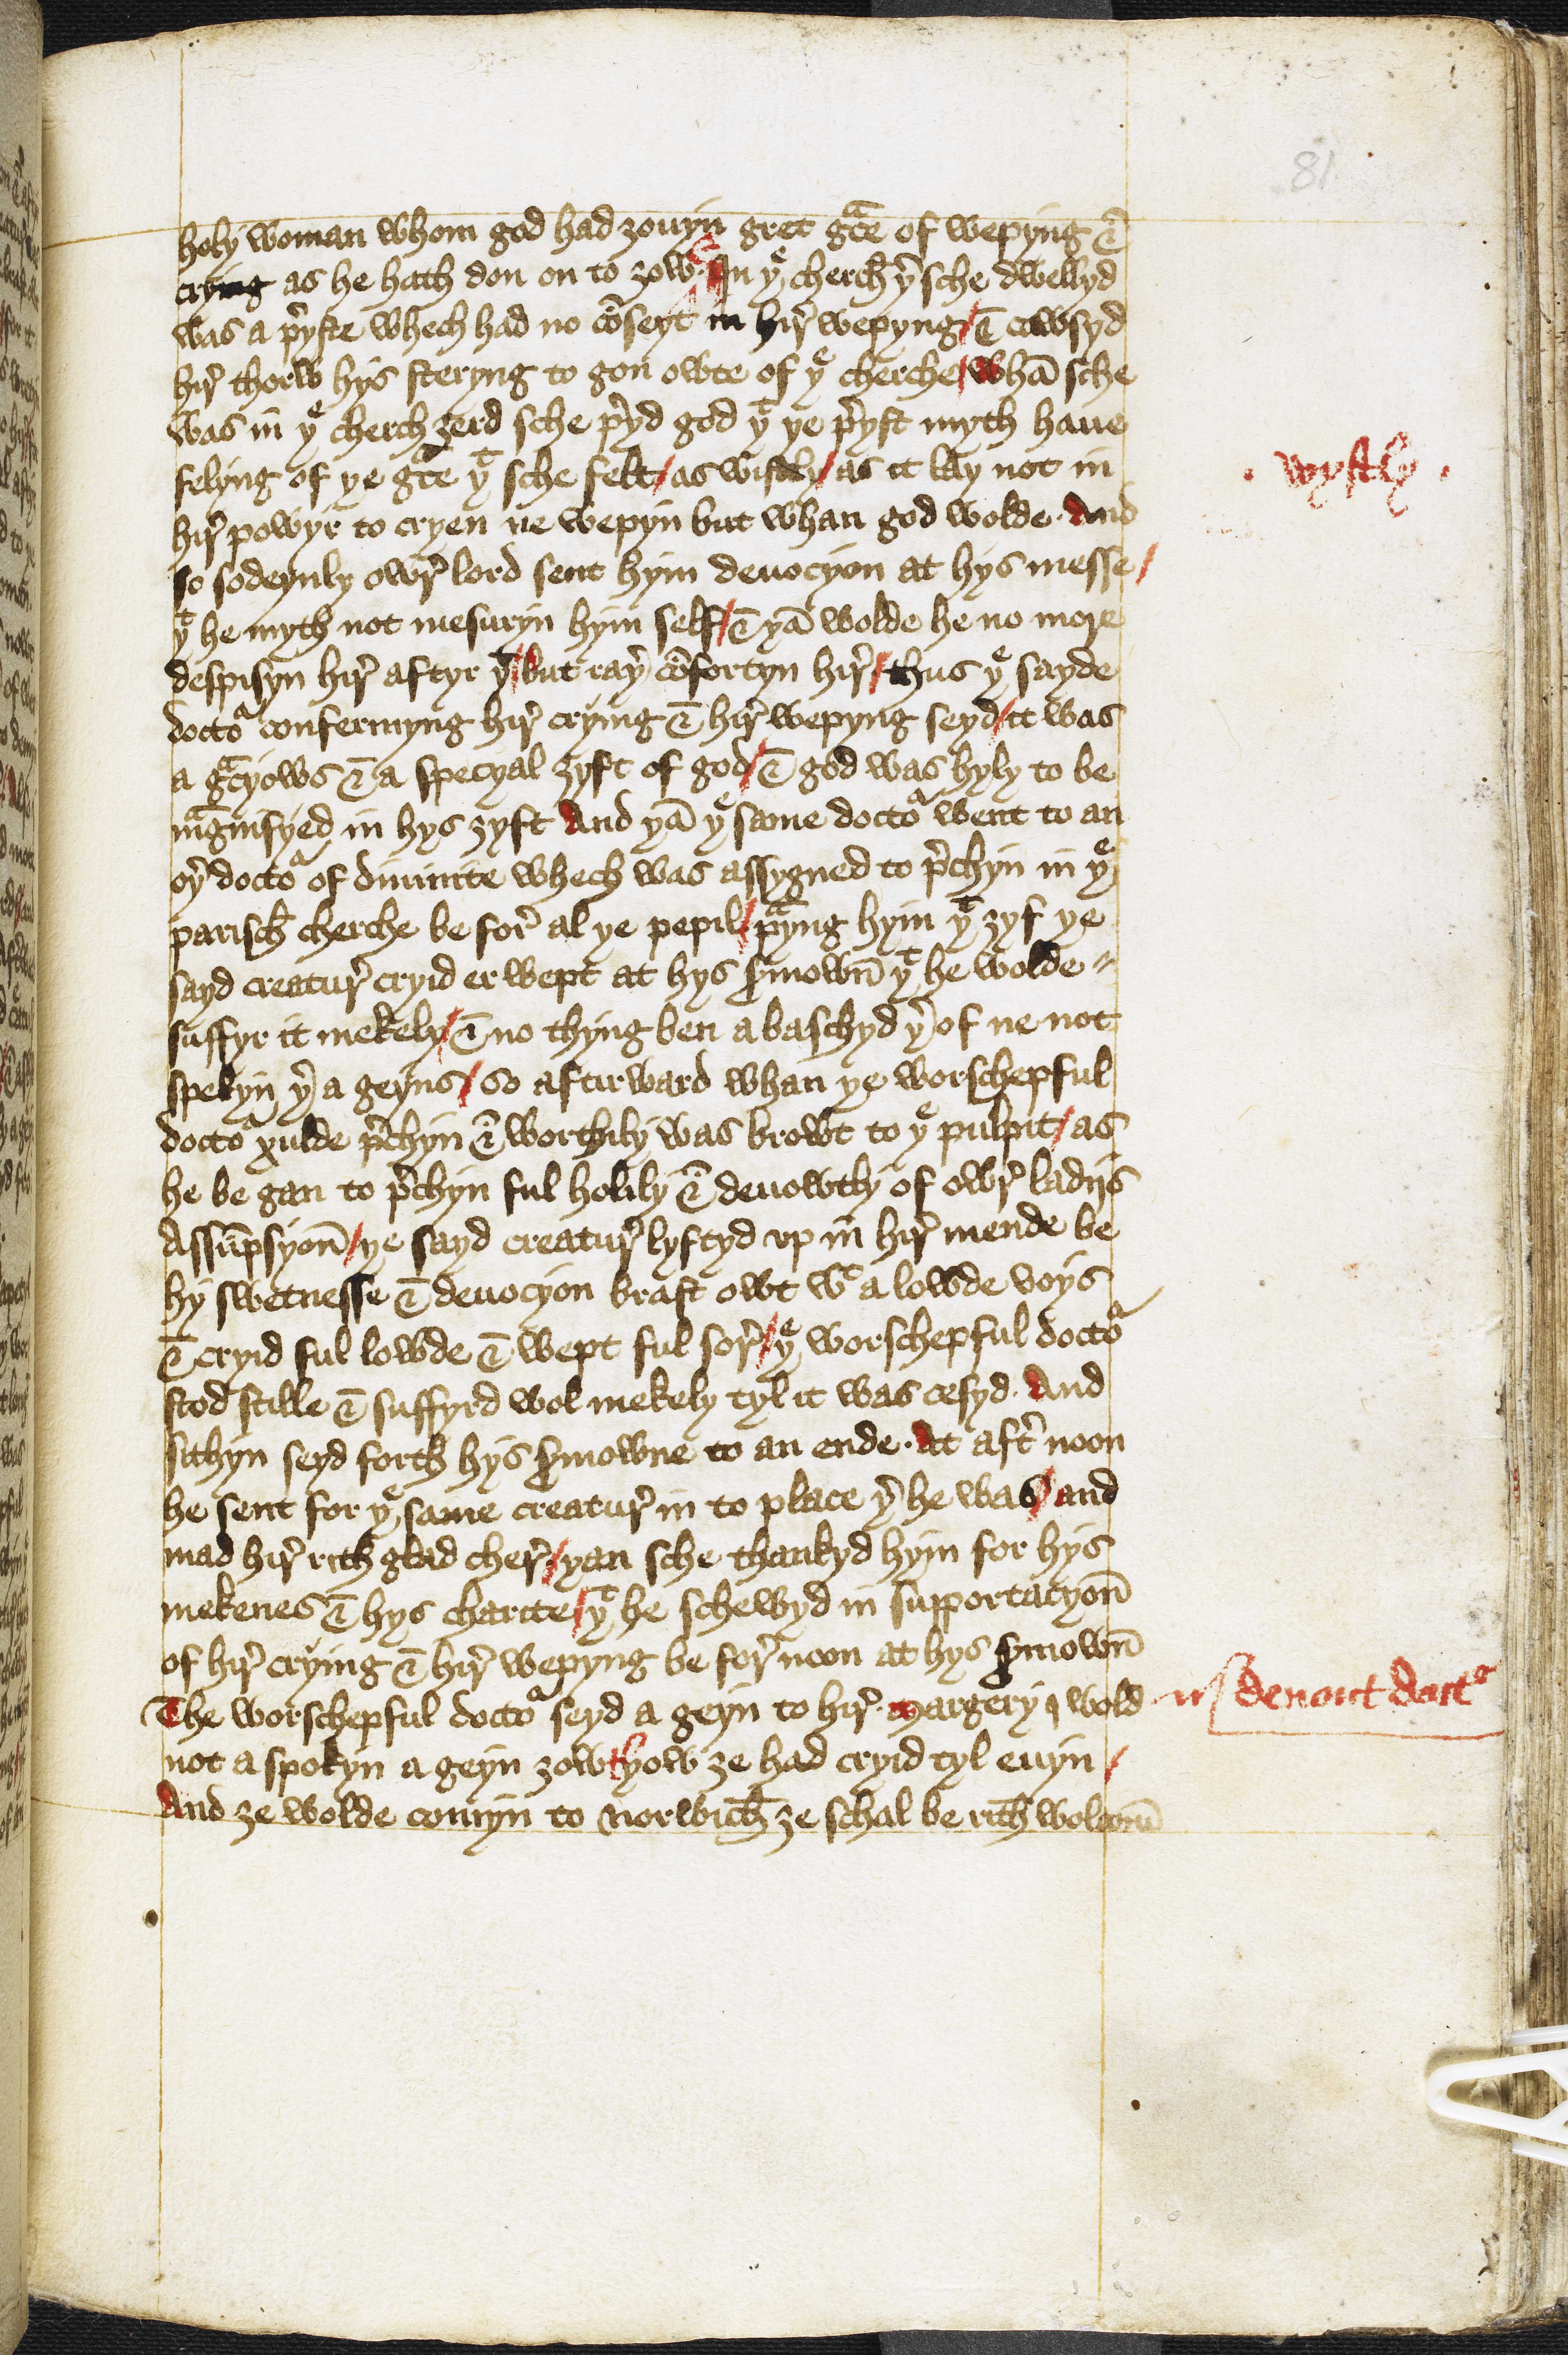 81
holy woman whom god had ȝouyn gret gᵃce of wepyng &
crying as he hath don on to ȝow. In yᵉ cherch yʳ sche dwellyd
was a p̄yste whech had no cōseyt in hir̄ wepyng / & cawsyd
hir̄ thorw hys steryng to gon owte of yᵉ cherche / whā sche
was in yᵉ cherch ȝerd sche p̄yd god yᵗ ye p̄yst myth haue
felyng of ye gᵃce yᵗ sche felt / as wistly / as it lay not in
. wystly .
hir̄ powyr to cryen ne wepyn but whan god wolde. And
so sodeynly owr̄ lord sent hym deuocyon at hys messe /
yᵗ he myth not mesuryn hym self / & yā wolde he no more
despisyn hir̄ aftyr yᵗ / but rayʳ cōfortyn hir̄ / thus yᵉ sayde
doctoʳ confermyng hir̄ crying & hir̄ wepyng seyd / it was
a gᵃcyows & a specyal ȝyft of god / & god was hyly to be
mᵃgnifyed in hys ȝyft And yā yᵉ same doctoʳ went to an
oyʳ doctoʳ of diuinite whech was assygned to p̄chyn in yᵉ
parisch cherche be for̄ al ye pepil / pᵃyng hym yᵗ ȝyf ye
sayd creatur̄ cryid er wept at hys s̄mown̄ yᵗ he wolde
suffyr it mekely / & no thyng ben a baschyd yʳ of ne not
spekyn yʳ a geyns / so aftirward whan ye worschepful
doctoʳ xulde p̄chyn & worthily was browt to yᵉ pulpit / as
he be gan to p̄chyn ful holily & deuowtly of owr̄ ladijs
Assūpsyon̄ / ye sayd creatur̄ lyftyd vp in hir̄ mende be
hy swetnesse & deuocyon brast owt wᵗ a lowde voys
& cryid ful lowde & wept ful sor̄ / yᵉ worschepful doctoʳ
stod stille & suffyrd wol mekely tyl it was cesyd. And
sithyn seyd forth hys s̄mowne to an ende. At aft̄ noon
he sent for yᵉ same creatur̄ in to place yʳ he was / and
mad hir̄ rith glad cher̄ / yan sche thankyd hym for hys
mekenes & hys charite / yᵗ he schewyd in supportacyon̄
of hir̄ crying & hir̄ wepyng be for̄ noon at hys s̄mown̄
The worschepful doctoʳ seyd a geyn to hir̄. Margery I wold
deuout doctʳ
not a spokyn a geyn ȝow thow ȝe had cryid tyl euyn /
And ȝe wolde comyn to norwich ȝe schal be rith wolcom̄